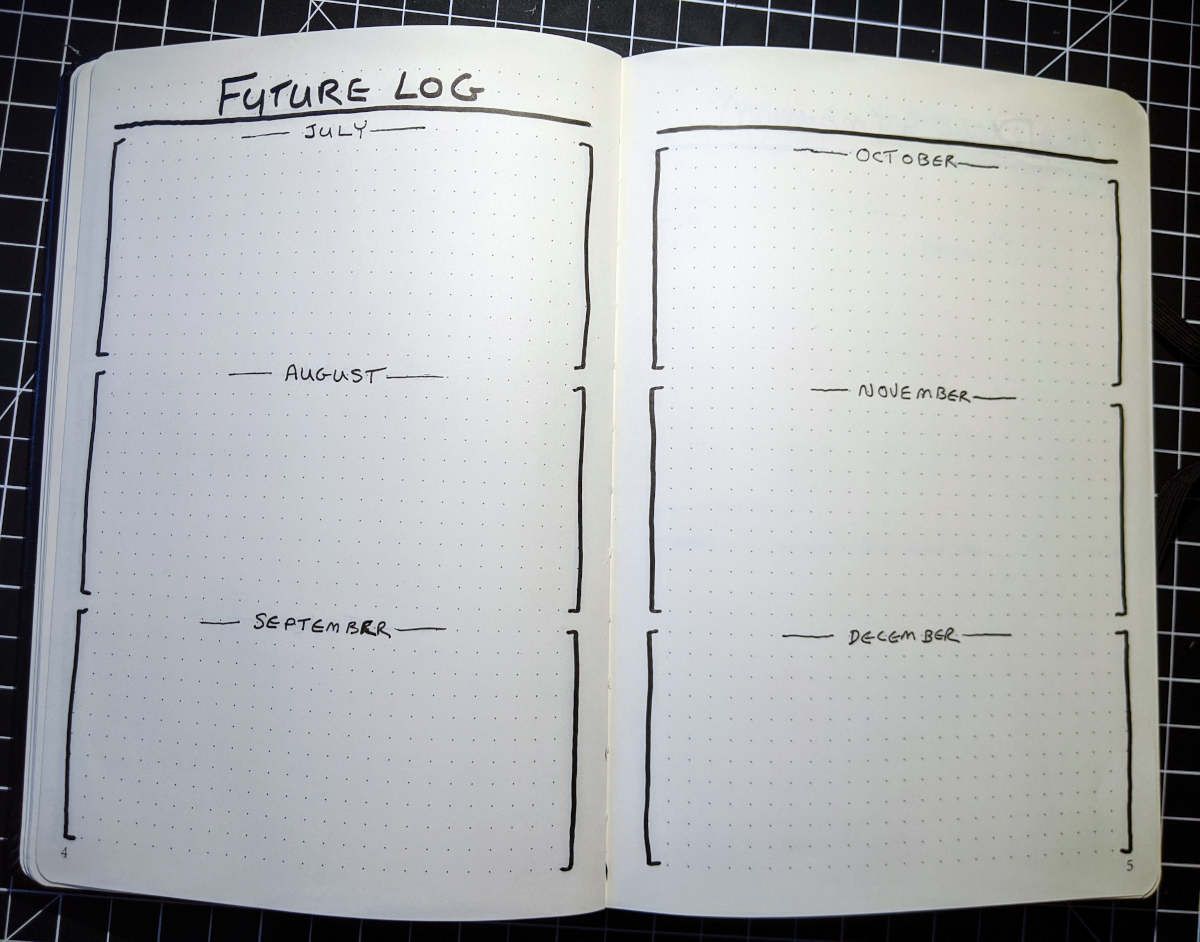 FUTURE LOG
JULY
AUGUST
SEPTEMBRR
4
OCTOBER
NOVEMBER
DECEMBER
5